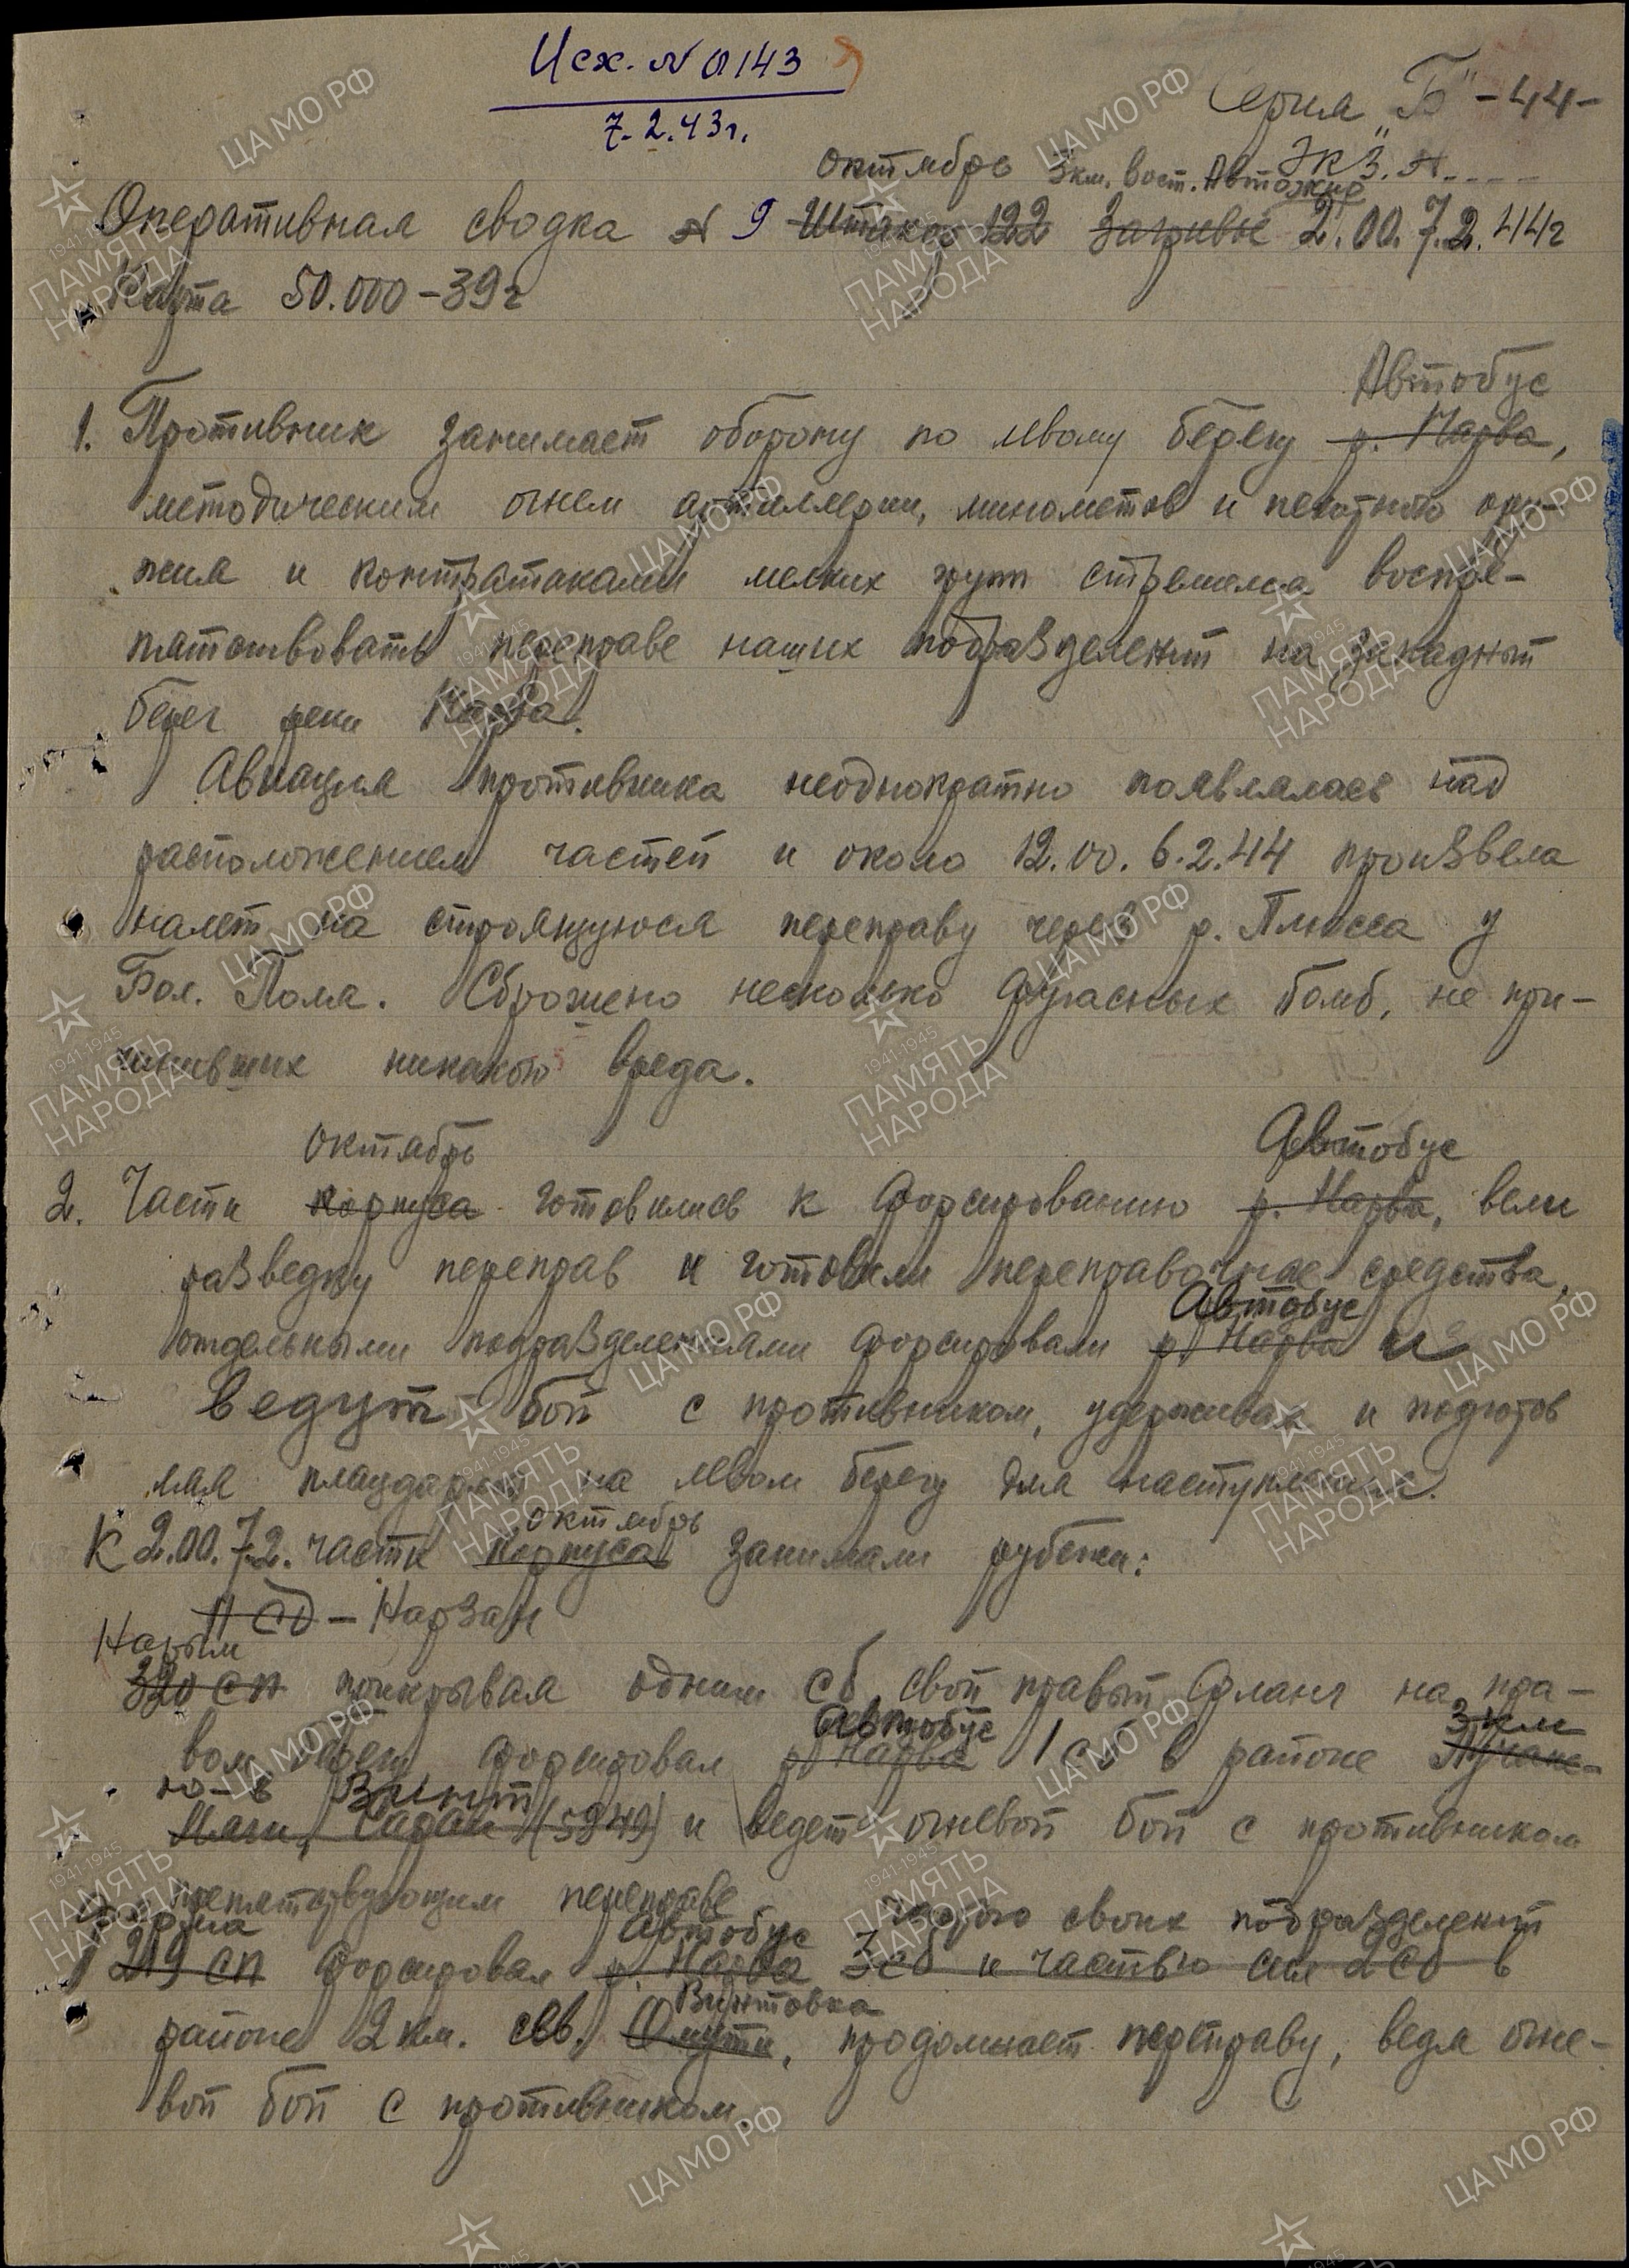 Исх. № 0143
7.2.43г.
Серия "Б" -44-
Экз. №
Октябрь 3км. вост. Автожир
Оперативная сводка № 9 Штакор 122 Загривье 2.00. 7.2.44г
Карта 50.000-39г
Автобус
1. Противник занимает оборону по левому берегу р. Нарва,
методическим огнем артиллерии, минометов и пехотного ору-
жия и контратаками мелких груп стремился воспре-
пятствовать переправе наших подразделений на западный
берег реки Нарва.
Авиация противника неоднократно появлялась над
расположением частей и около 12.00. 6.2.44 произвела
налет на строящуюся переправу через р. Плюсса у
Бол. Поля. Сброшено несколько фугасных бомб, не при-
чинивших никакого вреда.
Октябрь Автобус
2. Части корпуса готовились к форсированию р. Нарва, вели
разведку переправ и готовили переправочные средства,
Автобус
отдельными подразделениями форсировали р Нарва и
ведут бой с противником, удерживая и подготов
ляя плацдарм на левом берегу для наступления.
октябрь
К 2.00. 7.2. части корпуса занимали рубежи:
11 СД - Нарзан
Нарым
320 СП прикрывая одним сб свой правый фланг на пра-
Автобус 3 км
вом берегу форсировал р Нарва 1 сб в районе
ю-в Винт
(5849) и ведет огневой бой с противником
препятствующим переправе
Автобус своих подразделений
219 СП форсировал р. Нарва 3сб и частью сил 2сб в
Винтовка
районе 2 км. свв. Омути, продолжает переправу, ведя огне-
вой бой с противником.
ЦАМО РФ
ПАМЯТЬ НАРОДА
1941-1945